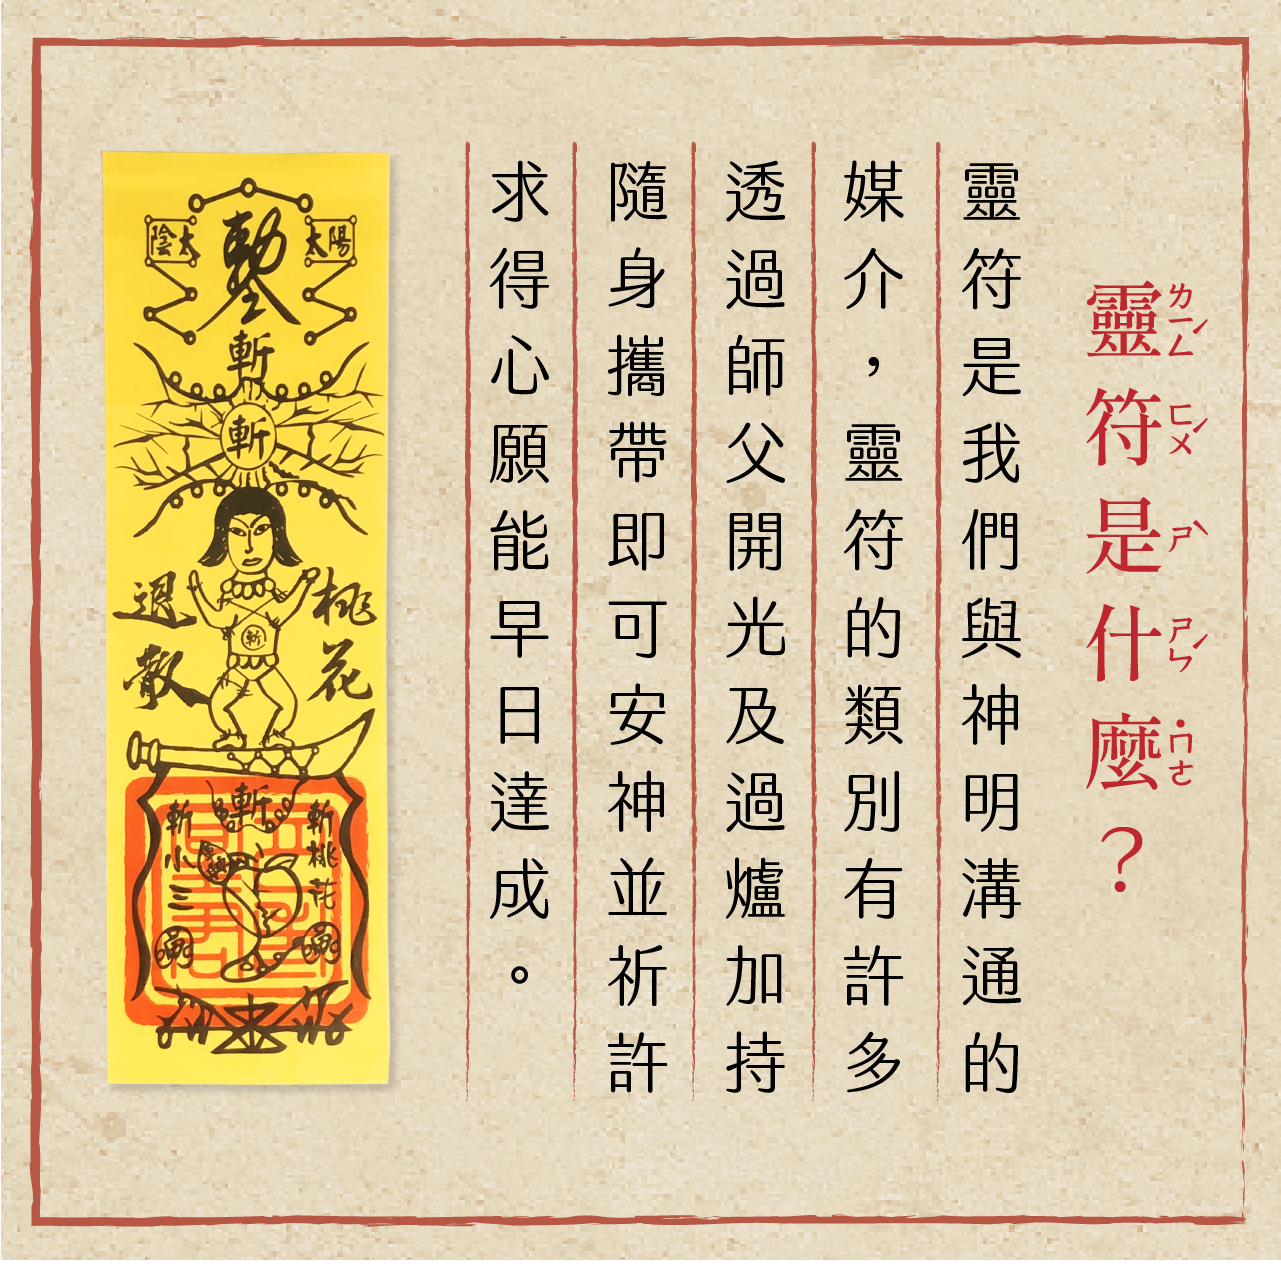 靈符是什麼？
ㄌㄧㄥˊ ㄈㄨˊ ㄕˋ ㄕㄣˊ ˙ㄇㄜ
靈符是我們與神明溝通的
媒介，靈符的類別有許多
透過師父開光及過爐加持
隨身攜帶即可安神並祈許
求得心願能早日達成。
太陽
太陰
斬
斬
桃花
退散
斬
斬
斬桃花
斬小三